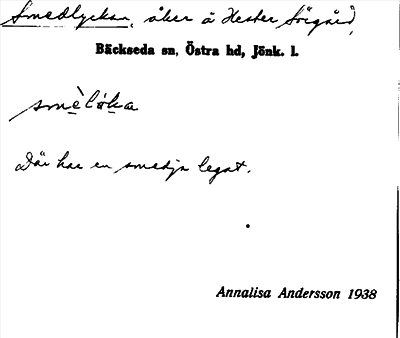 Smedlyckan, åker å Hester Sörgård,
Bäckseda sn, Östra hd, Jönk. l.
smèlẙka
Där har en smedja legat.
Annalisa Andersson 1938